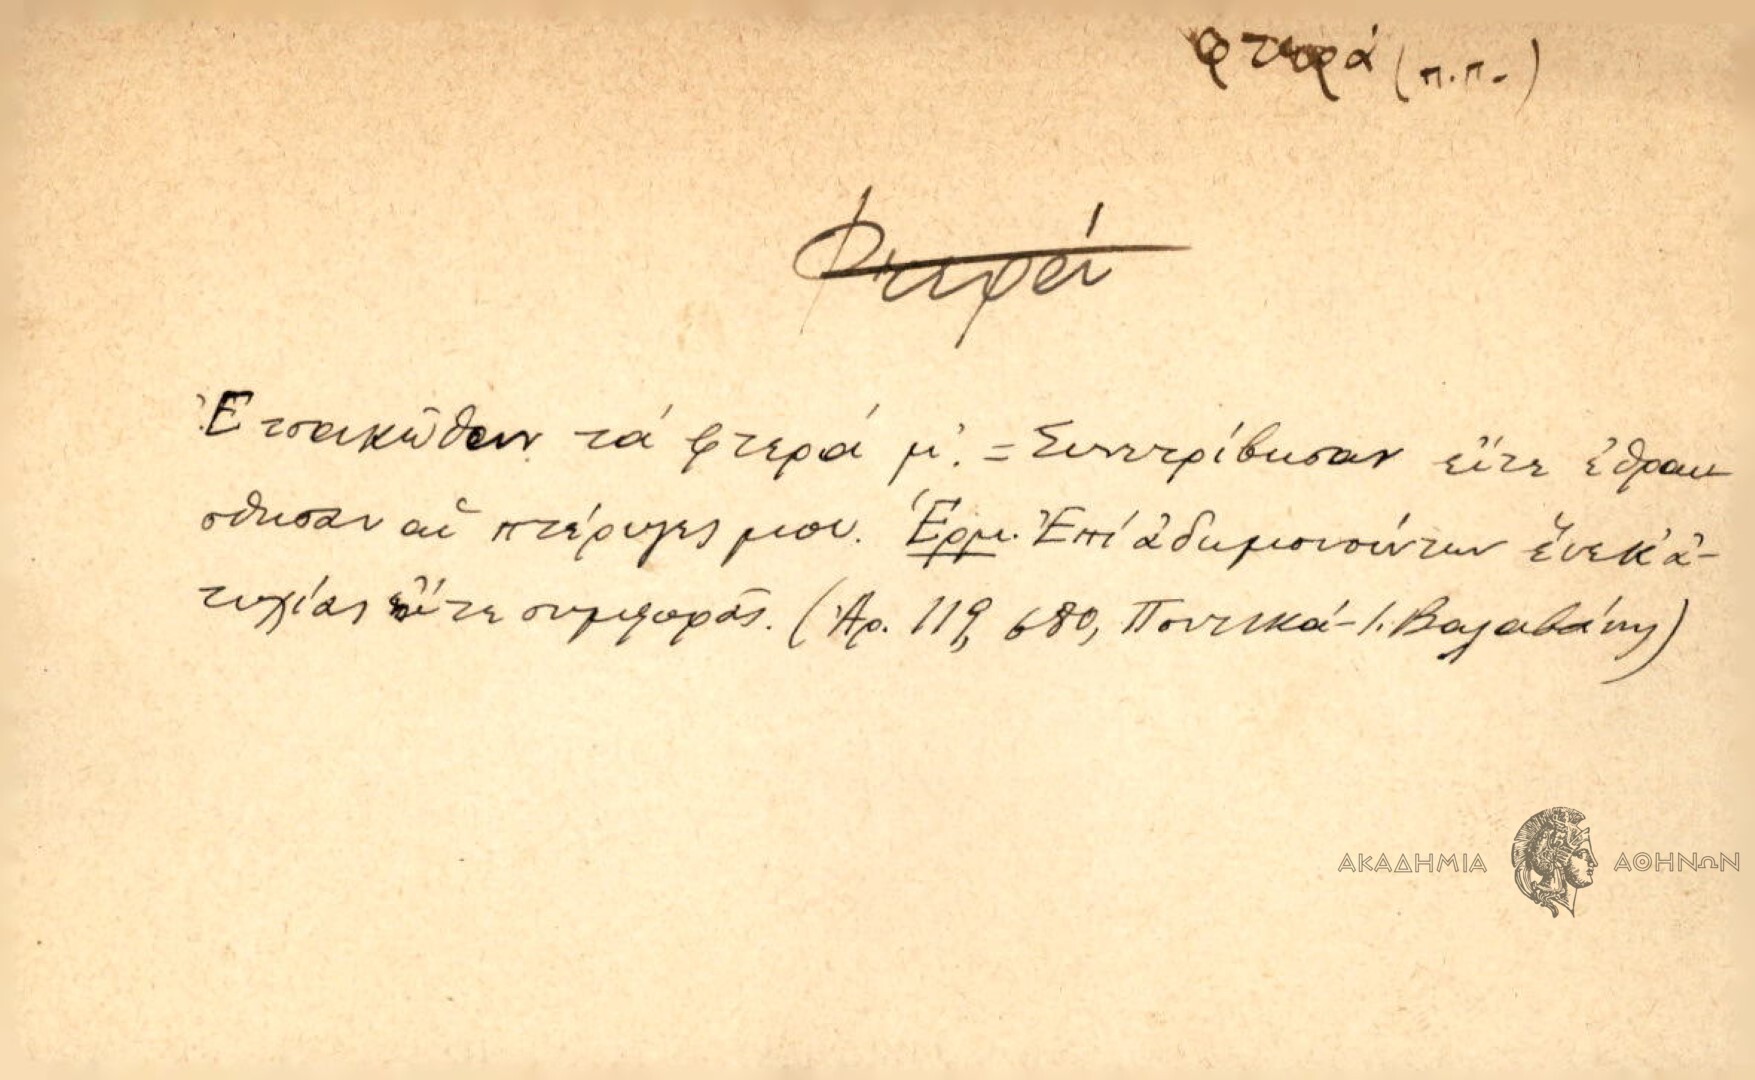 φτερά (π.π.)
Φτερά
Ἐτσακῶθαν τά φτερά μ'. = Συνετρίβησαν εἴτε ἐθραύ-
σθησαν αἱ πτέρυγες μου. Ἑρμ. Ἐπί ἀδημονούντων ἕνεκ' ἀ-
τυχίας εἴτε συμφορᾶς. (Ἀρ. 119, 680, Ποντικά - Ι. Βαλαβάνης)
ΑΚΑΔΗΜΙΑ ΑΘΗΝΩΝ